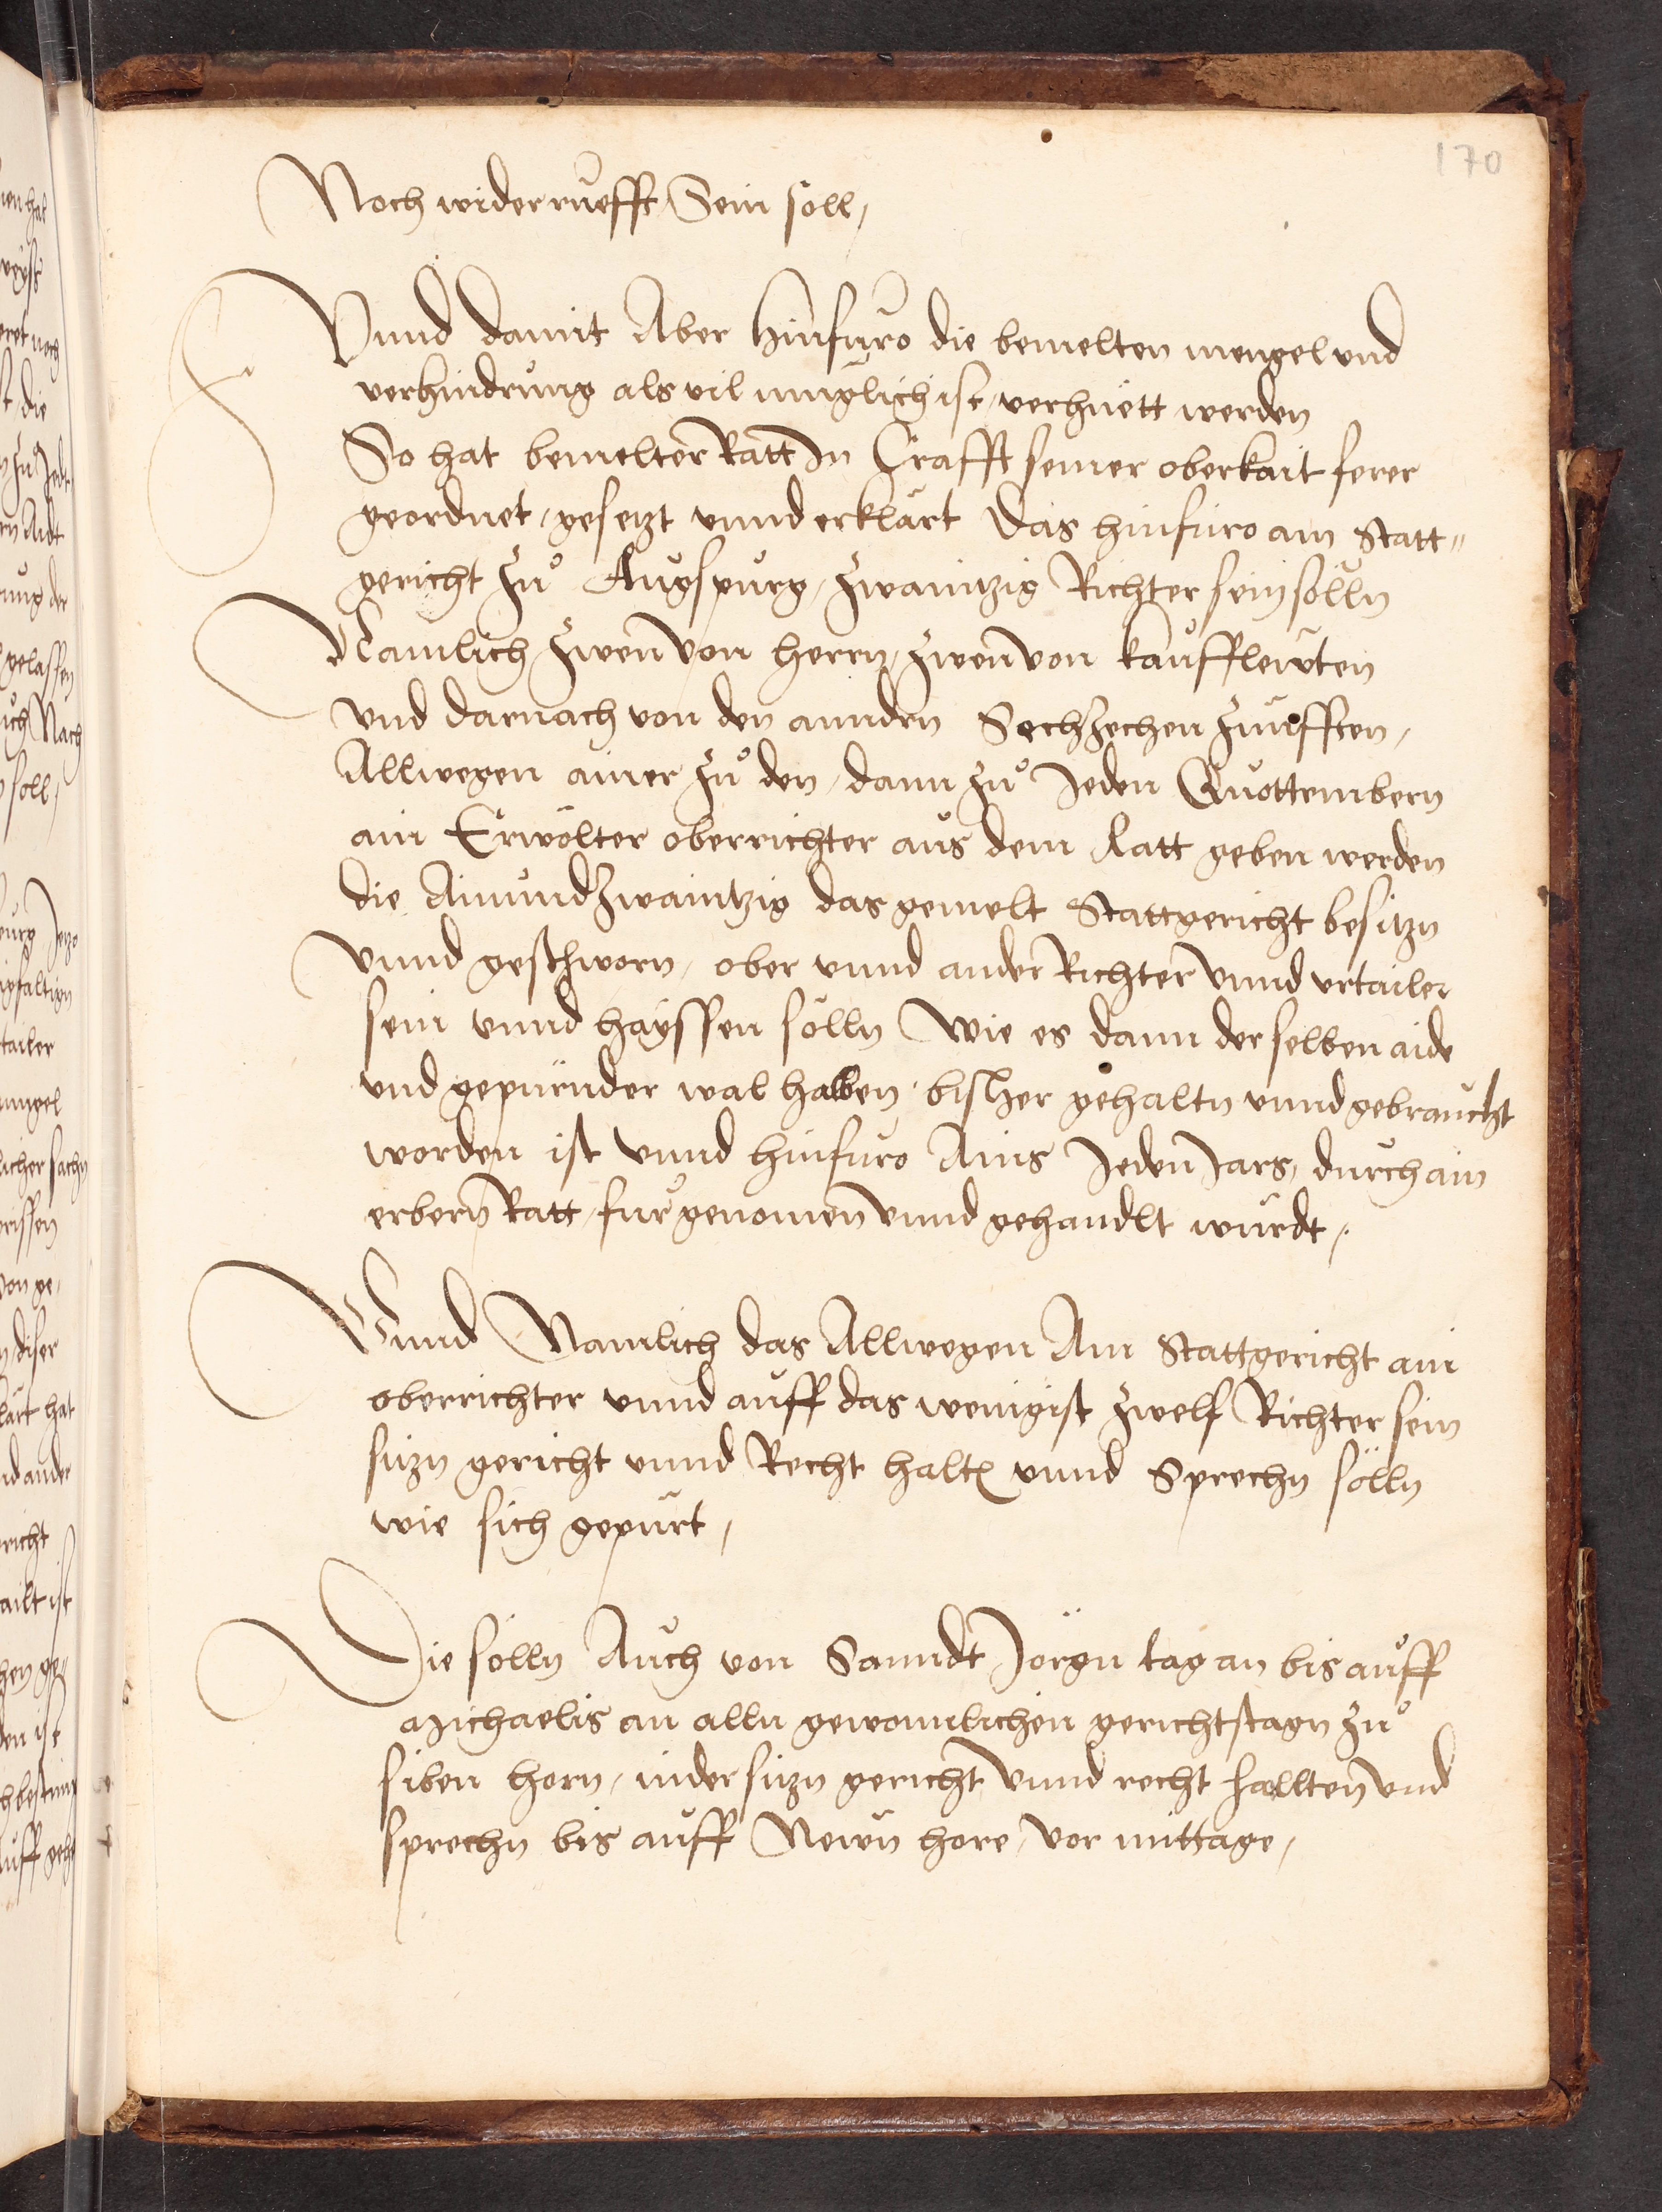 170
Noch widerruefft Sein soll,
Vnnd damit Aber hinfuro die bemelten mengel vnd
verhindrung als vil muglich ist, verhuett werden
So hat bemelter Ratt In Crafft seiner oberkait ferer
geordnet, gesetzt vnnd erklärt Das hinfuro am Statt„
gericht zů Augspurg, zwaintzig Richter sein sölln
Namlich zwen von herrn, zwen von kaufflewten
vnd darnach von den anndrn Sechzechen zunfften,
Allwegen ainer zů den, dann zů Jeden Quottembern
ain Erwölter oberrichter aus dem Ratt geben werden
die Ainundzwaintzig das gemelt Stattgericht besitzn
vnnd geschworn, ober vnnd ander Richter vnnd vrtailer
sein vnnd hayssen sölln Wie es dann derselben aide
vnd gepurnder wal halben, bisher gehaltn vnnd gebraucht
worden ist vnnd hinfuro Ains Jeden Jars, durch ain
erbern Ratt, fur genomen vnnd gehandlt wurdt,
Vnnd Namlich das Allwegen Am Stattgericht ain
oberrichter vnnd auff das wenigist zwelf Richter sein
sitzn gericht vnnd Recht haltn vnnd Sprechn sölln
wie sich gepurt,
Die sölln Auch von Sanndt Jörgn tag an bis auff
Michaelis an alln gewonnlichen gerichtstagn zů
siben horn, nidersitzn gericht vnnd recht hallten vnd
sprechn bis auff Newn hore, vor mittage,